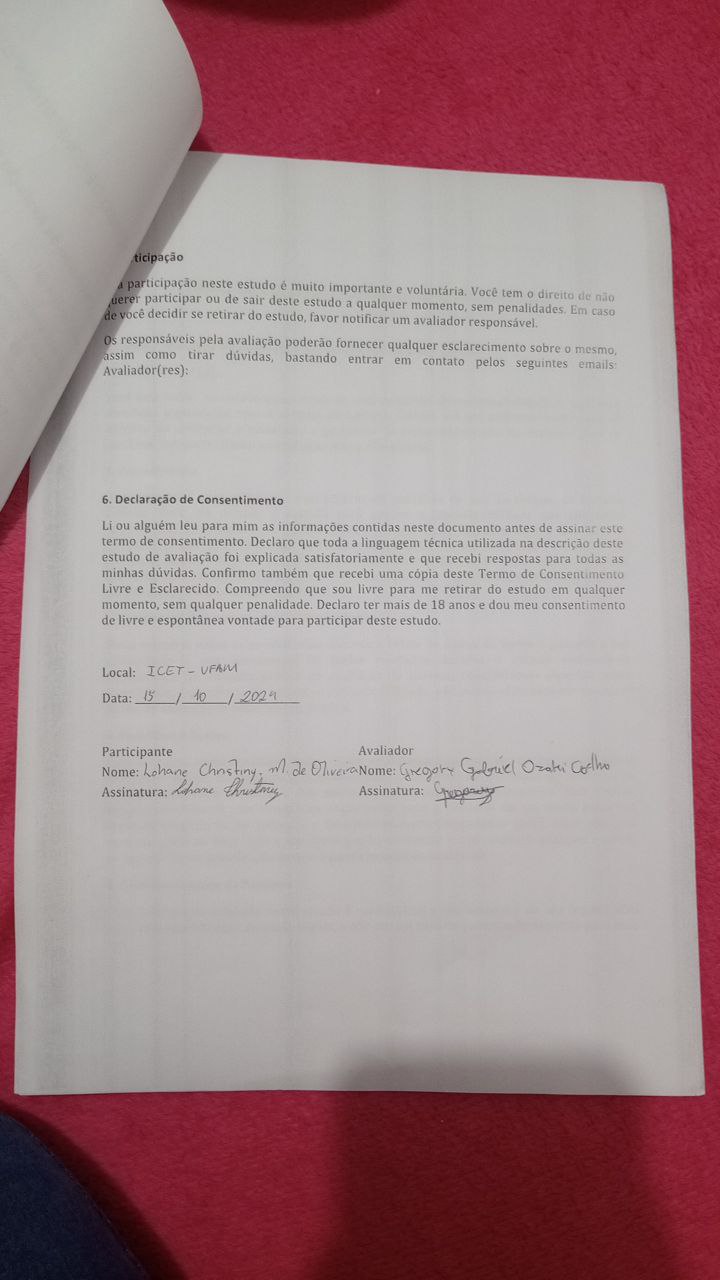 ticipação
a participação neste estudo é muito importante e voluntária. Você tem o direito de não
querer participar ou de sair deste estudo a qualquer momento, sem penalidades. Em caso
de você decidir se retirar do estudo, favor notificar um avaliador responsável.
Os responsáveis pela avaliação poderão fornecer qualquer esclarecimento sobre o mesmo,
assim como tirar dúvidas, bastando entrar em contato pelos seguintes emails:
Avaliador(res):
6. Declaração de Consentimento
Li ou alguém leu para mim as informações contidas neste documento antes de assinar este
termo de consentimento. Declaro que toda a linguagem técnica utilizada na descrição deste
estudo de avaliação foi explicada satisfatoriamente e que recebi respostas para todas as
minhas dúvidas. Confirmo também que recebi uma cópia deste Termo de Consentimento
Livre e Esclarecido. Compreendo que sou livre para me retirar do estudo em qualquer
momento, sem qualquer penalidade. Declaro ter mais de 18 anos e dou meu consentimento
de livre e espontânea vontade para participar deste estudo.
Local: ICET - UFAM
Data: 15 / 10 / 2024
Participante Avaliador
Nome: Lohane Christiny. M. de Oliveira Nome: Gregory Gabriel Ozaki Coelho
Assinatura: Lohane Christiny Assinatura: Gregory